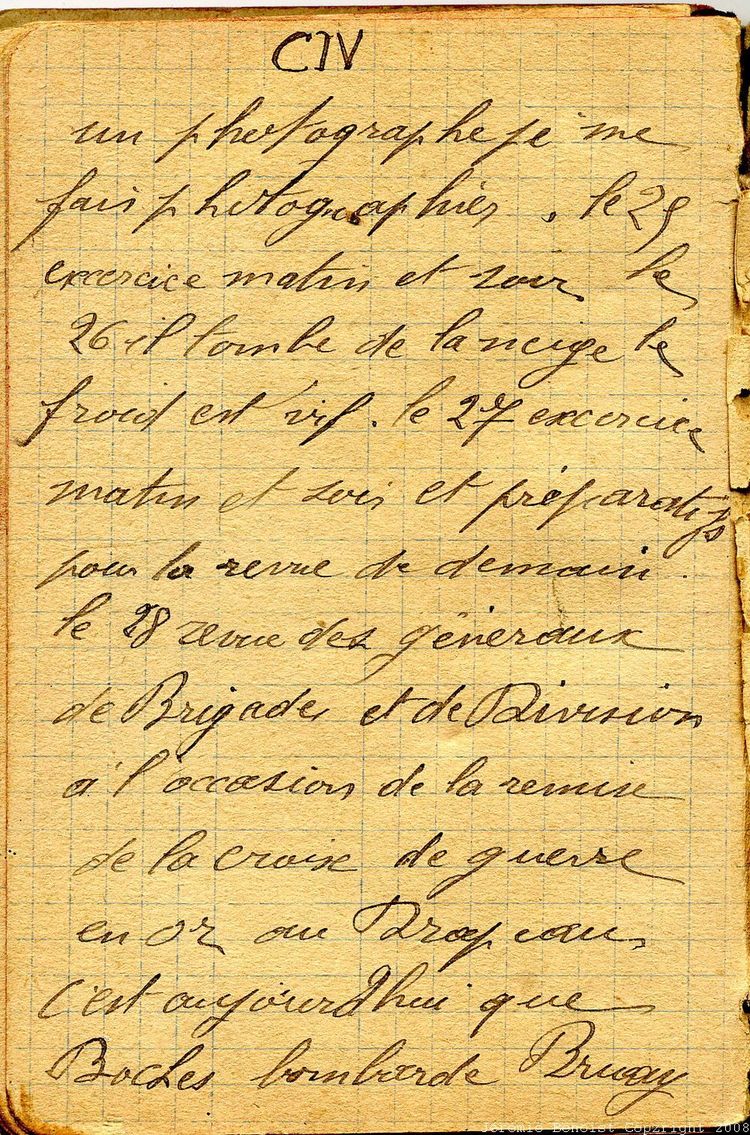 CIV
un photographe je me
fais photographiér. le 25
excercice matin et soir le
26 il tombe de la neige le
froid est vif. le 27 excercice
matin et soir et préparatifs
pour la revue de demain.
le 28 revue des généraux
de Brigades et de Division
á l'occasion de la remise
de la croix de guerre
en or au Drapeau
c'est aujourd'hui que
Boches bombarde Bruay
Jeremie Benoist Copyright 2008